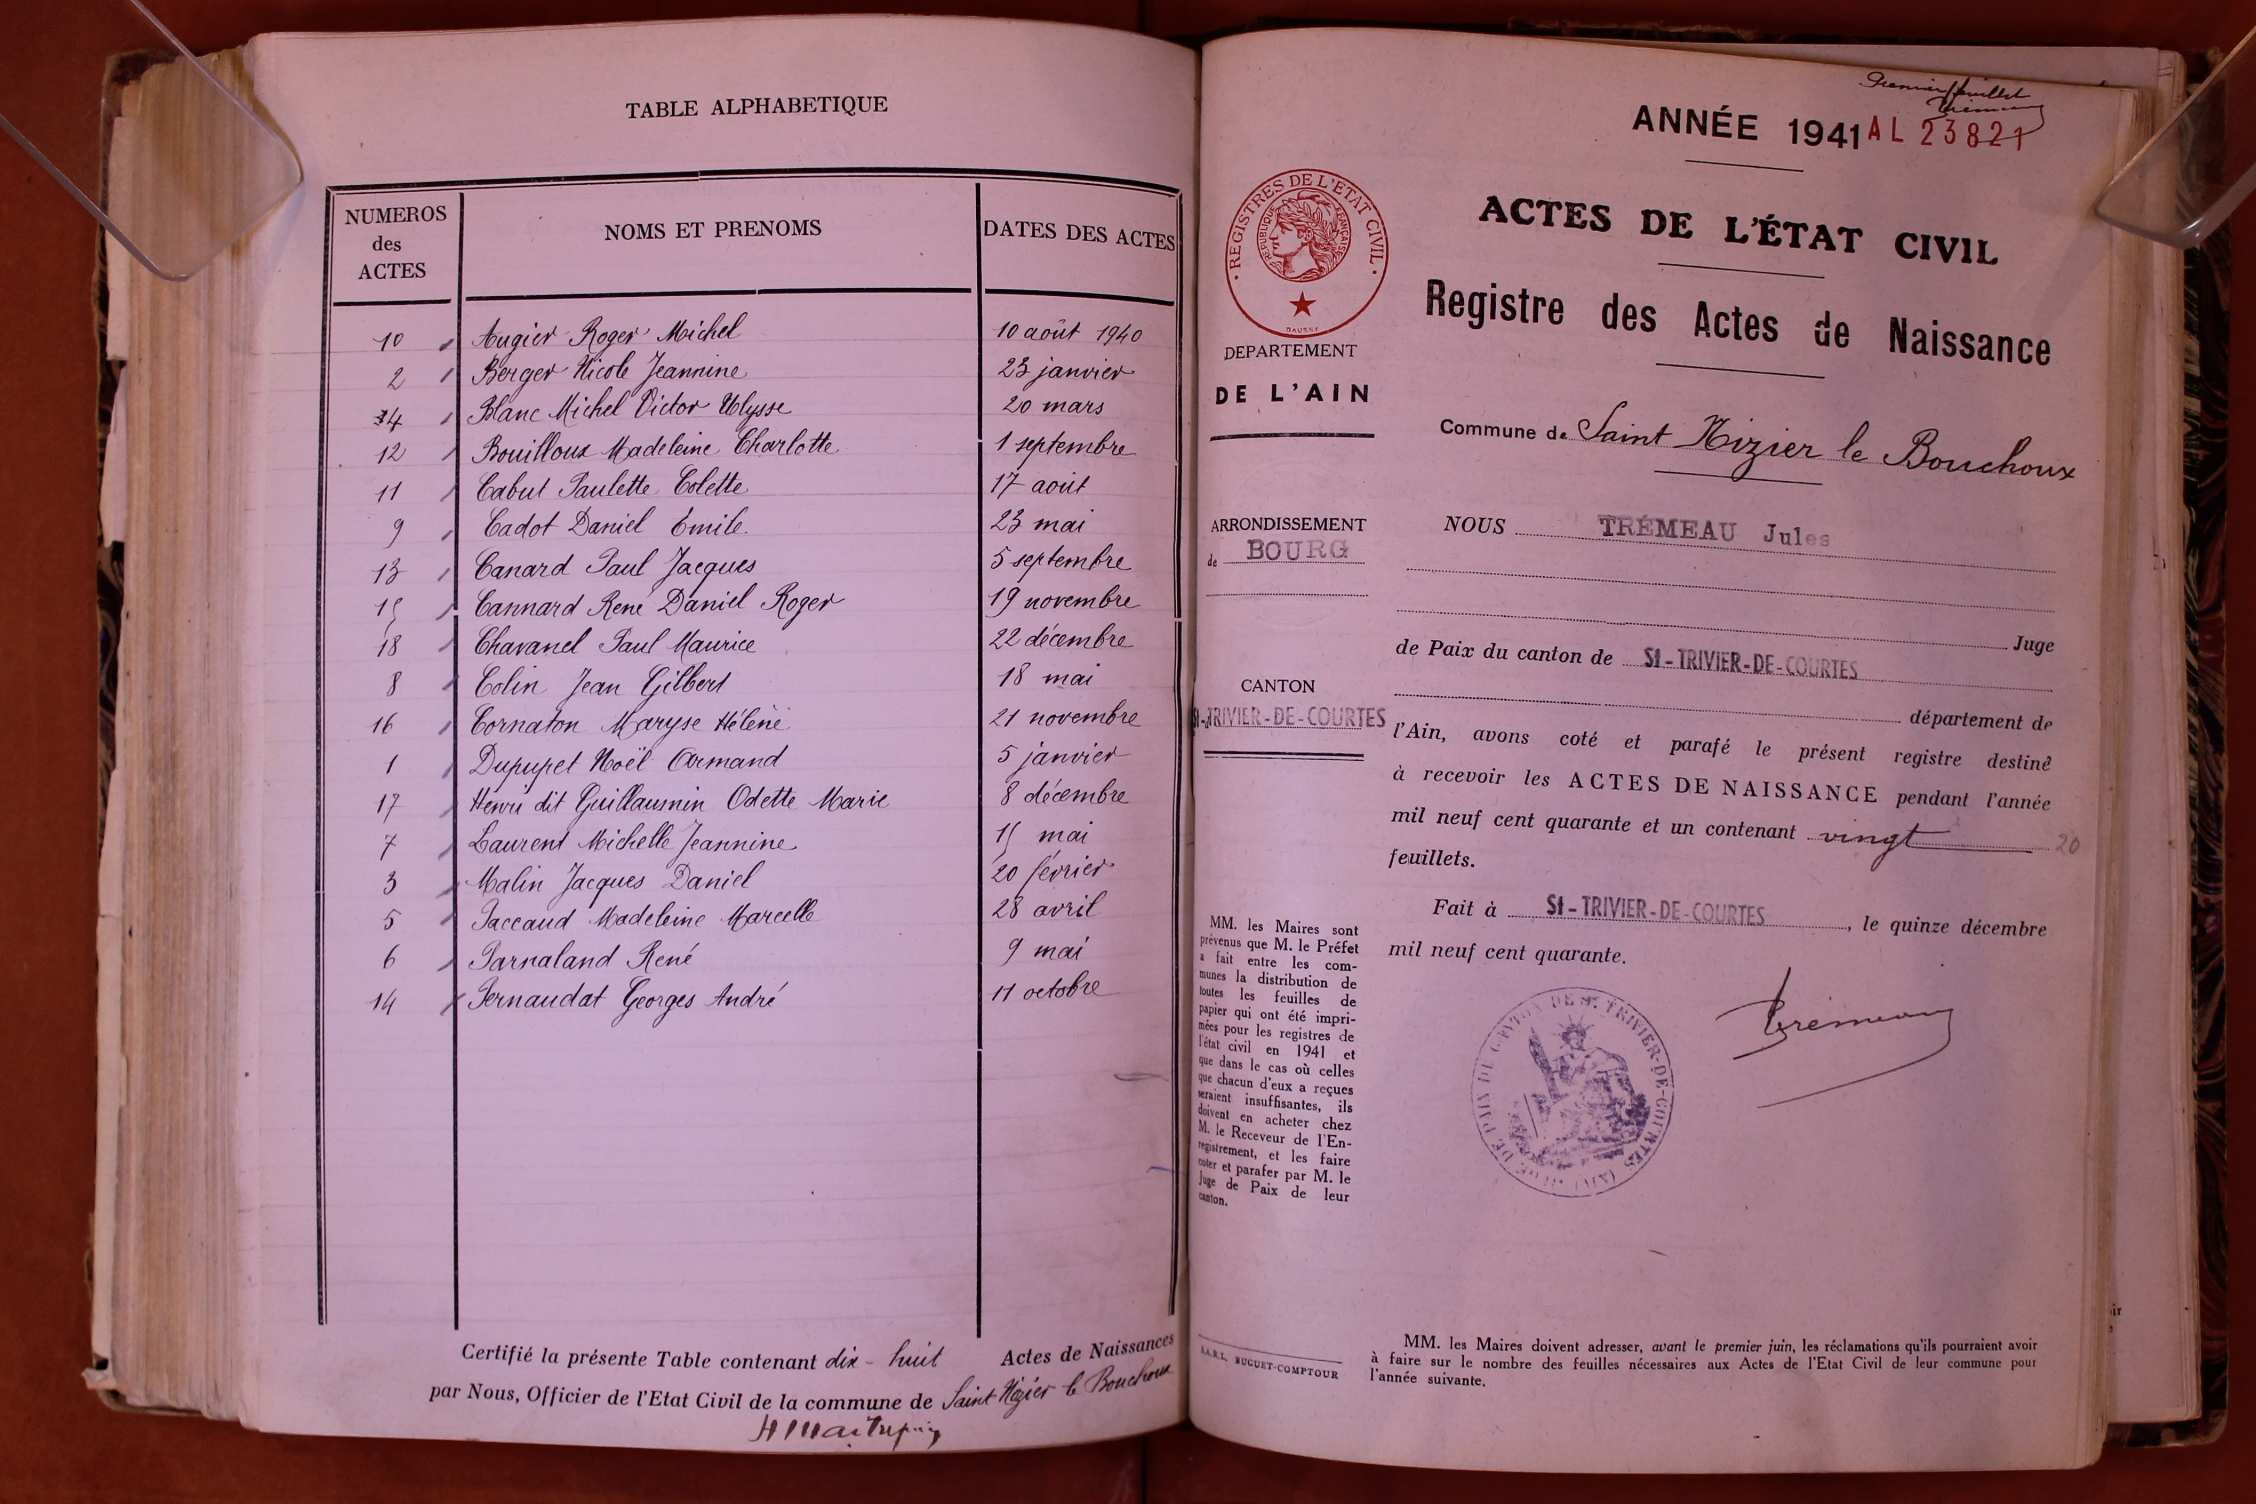 TABLE ALPHABETIQUE
NUMEROS des ACTES NOMS ET PRENOMS DATES DES ACTES
10 Augier Roger Michel 10 août 1940
2 Berger Nicole Jeannine 23 janvier
4 Blanc Michel Victor Ulysse 20 mars
12 Bouilloux Madeleine Charlotte 1 septembre
11 Cabut Paulette Colette 17 août
9 Cadot Daniel Emile 23 mai
13 Canard Paul Jacques 5 septembre
15 Cannard René Daniel Roger 19 novembre
18 Chavanel Paul Maurice 22 décembre
8 Colin Jean Gilbert 18 mai
16 Cornaton Maryse Hélène 21 novembre
1 Dupupet Noël Armand 5 janvier
17 Henri dit Guillaumin Odette Marie 8 décembre
7 Laurent Michelle Jeannine 15 mai
3 Malin Jacques Daniel 20 février
5 Paccaud Madeleine Marcelle 28 avril
6 Parnaland René 9 mai
14 Pernaudat Georges André 11 octobre
Certifié la présente Table contenant dix-huit Actes de Naissances
par Nous, Officier de l'Etat Civil de la commune de Saint Nizier le Bouchoux
Premier feuillet
ANNÉE 1941 AL 23821
ACTES DE L'ÉTAT CIVIL
Registre des Actes de Naissance
Commune de Saint Nizier le Bouchoux
REGISTRES DE L'ETAT CIVIL
REPUBLIQUE FRANÇAISE
DAUSSY
DEPARTEMENT
DE L'AIN
ARRONDISSEMENT
de BOURG
CANTON
St-TRIVIER-DE-COURTES
MM. les Maires sont
prévenus que M. le Préfet
a fait entre les com-
munes la distribution de
toutes les feuilles de
papier qui ont été impri-
mées pour les registres de
l'état civil en 1941 et
que dans le cas où celles
que chacun d'eux a reçues
seraient insuffisantes, ils
doivent en acheter chez
M. le Receveur de l'En-
registrement, et les faire
coter et parafer par M. le
Juge de Paix de leur
canton.
S.A.R.L. BUGUET-COMPTOUR
NOUS TRÉMEAU Jules
Juge
de Paix du canton de St-TRIVIER-DE-COURTES
département de
l'Ain, avons coté et parafé le présent registre destiné
à recevoir les ACTES DE NAISSANCE pendant l'année
mil neuf cent quarante et un contenant vingt 20
feuillets.
Fait à St-TRIVIER-DE-COURTES, le quinze décembre
mil neuf cent quarante.
Trémeau
MM. les Maires doivent adresser, avant le premier juin, les réclamations qu'ils pourraient avoir
à faire sur le nombre des feuilles nécessaires aux Actes de l'Etat Civil de leur commune pour
l'année suivante.